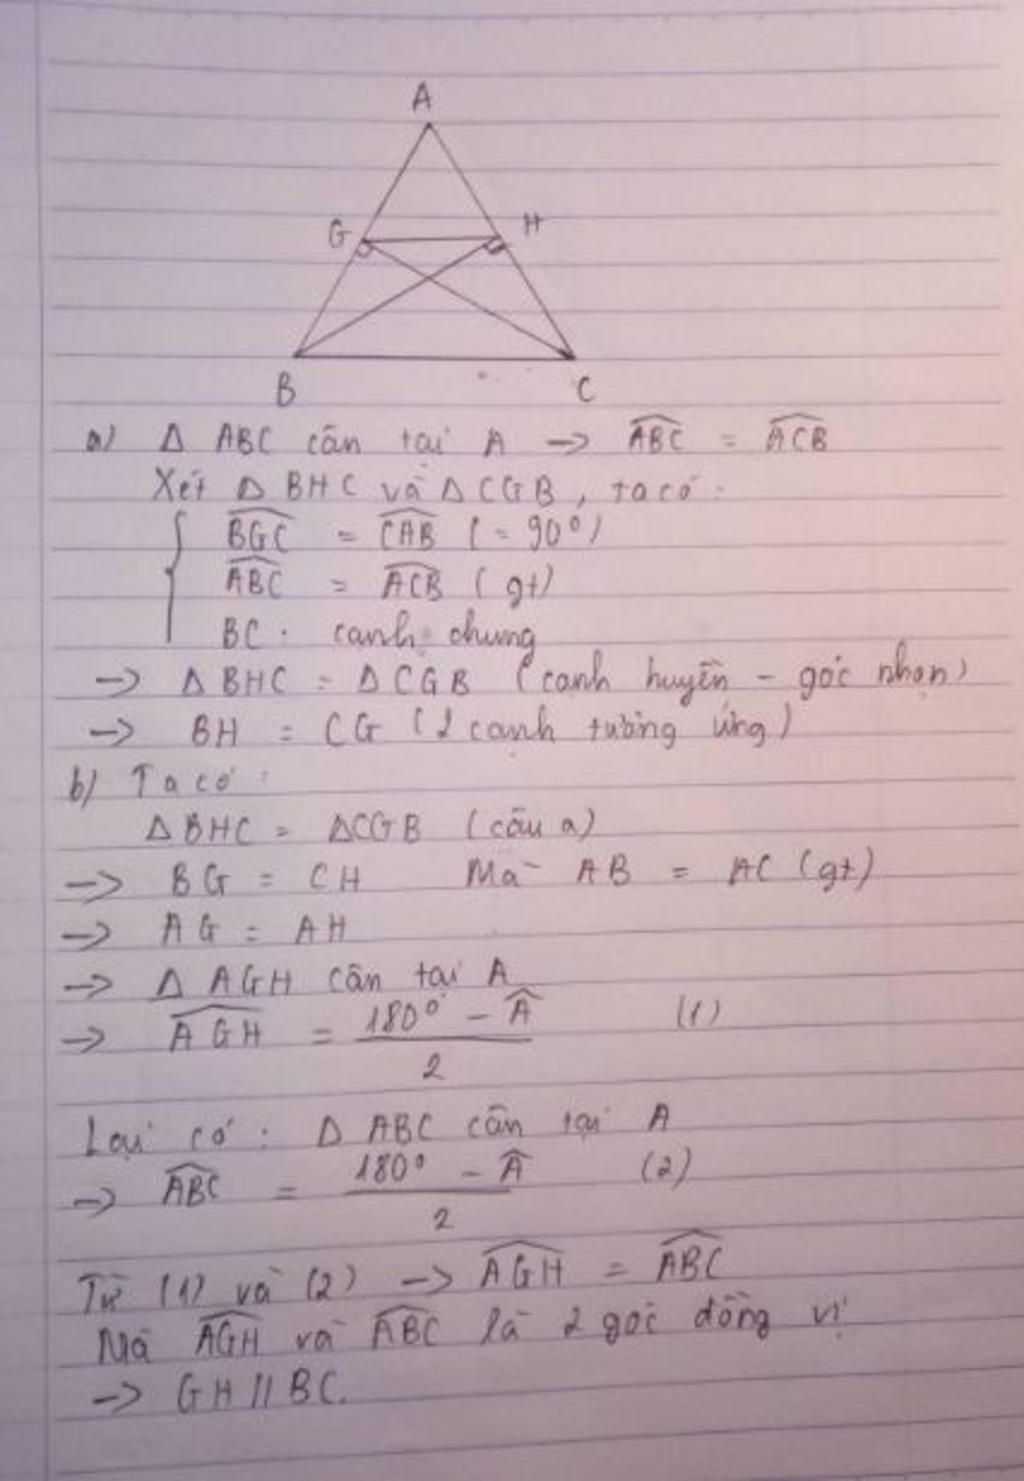 A
G
H
B
C
a) Δ ABC cân tại A → \widehat{ABC} = \widehat{ACB}
Xét Δ BHC và Δ CGB, ta có:
\widehat{BGC} = \widehat{CAB} (= 90°)
\widehat{ABC} = \widehat{ACB} (gt)
BC: cạnh chung
→ Δ BHC = Δ CGB (cạnh huyền - góc nhọn)
→ BH = CG (2 cạnh tương ứng)
b) Ta có:
Δ BHC = Δ CGB (câu a)
→ BG = CH Mà AB = AC (gt)
→ AG = AH
→ Δ AGH cân tại A
→ \widehat{AGH} = \frac{180° - \widehat{A}}{2} (1)
Lại có: Δ ABC cân tại A
→ \widehat{ABC} = \frac{180° - \widehat{A}}{2} (2)
Từ (1) và (2) → \widehat{AGH} = \widehat{ABC}
Mà \widehat{AGH} và \widehat{ABC} là 2 góc đồng vị
→ GH // BC.